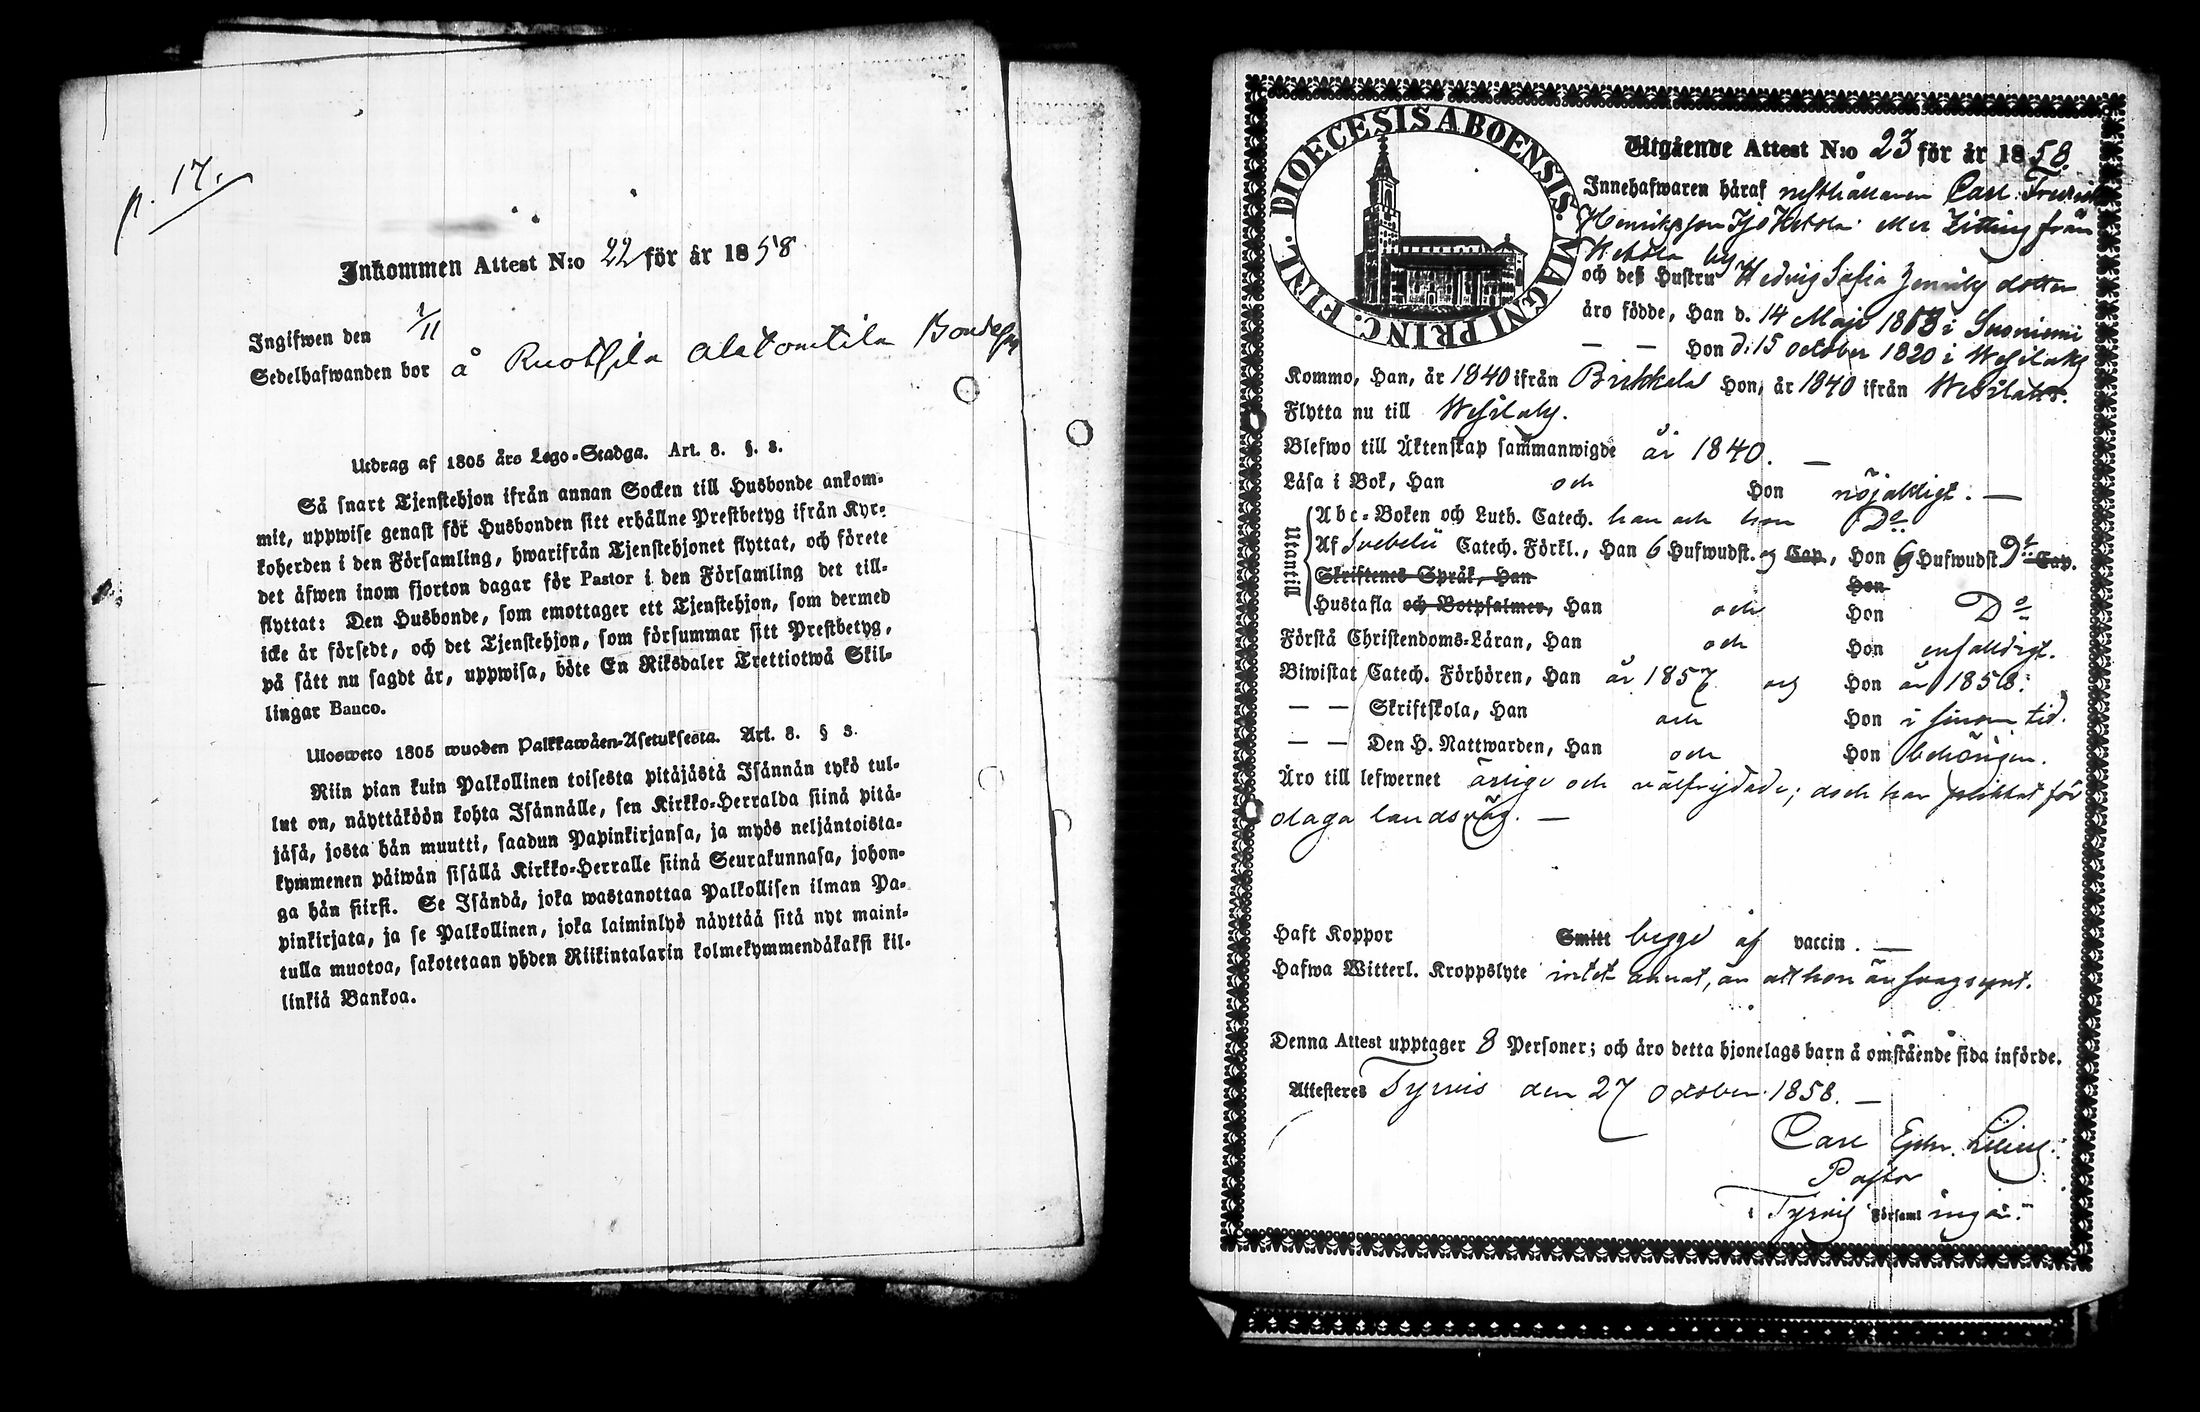 p. 17.
Inkommen Attest N:o 22 för år 1858
Ingifwen den 1/11
Sedelhafwanden bor å Ruothila Alatomtila Bonde
Utdrag af 1805 års Lego-Stadga. Art. 8. §. 3.
Så snart Tjenstehjon ifrån annan Socken till Husbonde ankom-
mit, uppwise genast för Husbonden sitt erhållne Prestbetyg ifrån Kyr-
koherden i den Församling, hwarifrån Tjenstehjonet flyttat, och förete
det äfwen inom fjorton dagar för Pastor i den Församling det till-
flyttat: Den Husbonde, som emottager ett Tjenstehjon, som dermed
icke är försedt, och det Tjenstehjon, som försummar sitt Prestbetyg,
på sätt nu sagdt är, uppwisa, böte En Riksdaler Trettiotwå Skil-
lingar Banco.
Ulosweto 1805 wuoden Palkkawäen-Asetuksesta. Art. 8. § 3.
Niin pian kuin Palkollinen toisesta pitäjästä Isännän tykö tul-
lut on, näyttäköön kohta Isännälle, sen Kirkko-Herralda siinä pitä-
jäsä, josta hän muutti, saadun Papinkirjansa, ja myös neljäntoista-
kymmenen päiwän sisällä Kirkko-Herralle siinä Seurakunnasa, johon-
ga hän siirsi. Se Isändä, joka wastanottaa Palkollisen ilman Pa-
pinkirjata, ja se Palkollinen, joka laiminlyö näyttää sitä nyt maini-
tulla muotoa, sakotetaan yhden Riikintalarin kolmekymmendäkaksi kil-
linkiä Bankoa.
DIOECESIS ABOENSIS. MAGNI PRINC. FINL.
Utgående Attest N:o 23 för år 1858.
Innehafwaren häraf rusthållaren Carl Fredrik
Henriksson Iso Ketola eller Zitting från
Ketola by
och deß Hustru Hedvig Sofia dotter
äro födde, Han d. 14 Maji 1813 i Suoniemi
— — Hon d: 15 october 1820 i Wesilaks
Kommo, Han, år 1840 ifrån Birkkala Hon, år 1840 ifrån Wesilaks.
Flytta nu till Wesilaks.
Blefwo till Äktenskap sammanwigde år 1840. —
Läsa i Bok, Han och Hon nöjaktigt. —
Utantill
Abc-Boken och Luth. Catech. han och hon Do
Af Svebelii Catech. Förkl., Han 6 Hufwudst. og Cap., Hon 6 Hufwudst Do Cap.
Skriftenes Språk, Han Hon
Hustafla och Botpsalmer, Han och Hon Do
Förstå Christendoms-Läran, Han och Hon enfaldigt.
Biwistat Catech. Förhören, Han år 1857 og Hon år 1858.
— — Skriftskola, Han och Hon i sinom tid.
— — Den H. Nattwarden, Han och Hon behörigen.
Äro till lefwernet ärlige och välfrejdade; dock har han pliktat för
olaga landsväg. —
Haft Koppor Smitt begge af vaccin. —
Hafwa Witterl. Kroppslyte intet annat, än att hon är svagsynt.
Denna Attest upptager 8 Personer; och äro detta hjonelags barn å omstående sida införde.
Attesteres Tyrvis den 27 October 1858. —
Carl Ephr. Lilius
Pastor
i Tyrvis Församlingar.